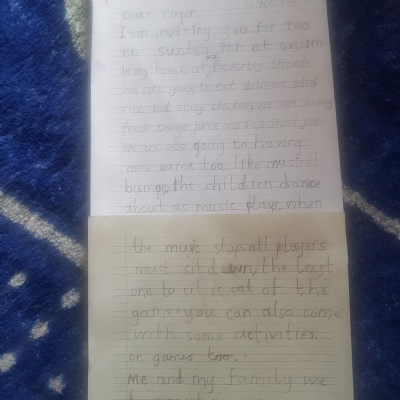 Dear Tiger
I am inviting you for Tea
on Sunday 7th at
house at Beverley Street.
We are going to eat delicious jollof
rice and spicy chicken, we
fresh orange juice and
We are also going to having
some game too like musical
bumps, the children dance
about as music plays, when
the music stop all players
must sit down, the last
one to sit is out of the
game. you can also come
with some activities.
or games too.
Me and my family we